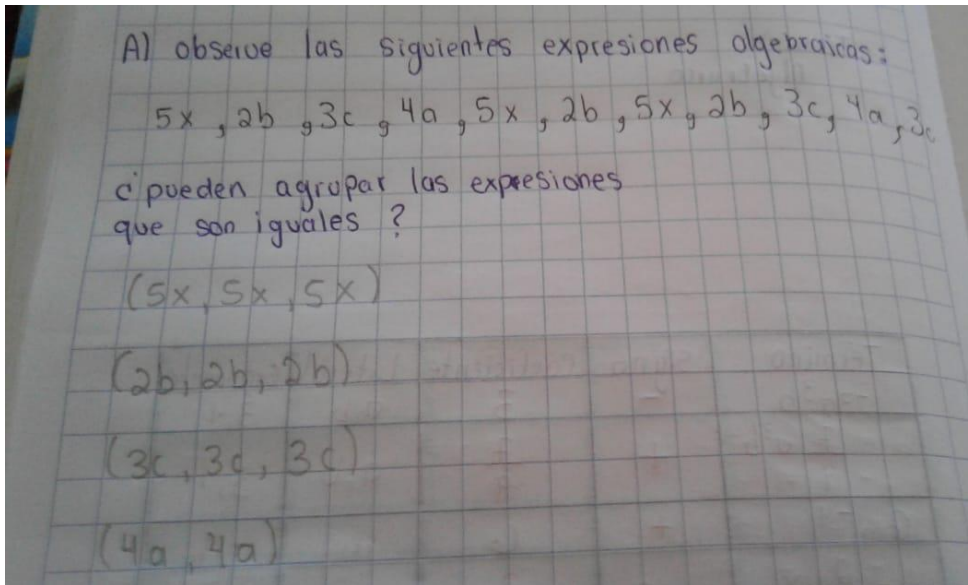 A) observe las siguientes expresiones algebraicas:
5x, 2b, 3c, 4a, 5x, 2b, 5x, 2b, 3c, 4a, 3c
¿pueden agrupar las expresiones
que son iguales?
(5x, 5x, 5x)
(2b, 2b, 2b)
(3c, 3c, 3c)
(4a, 4a)